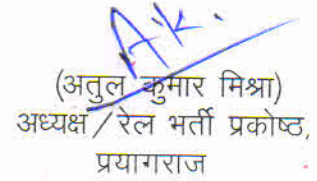 (अतुल कुमार मिश्रा)
अध्यक्ष / रेल भर्ती प्रकोष्ठ,
प्रयागराज